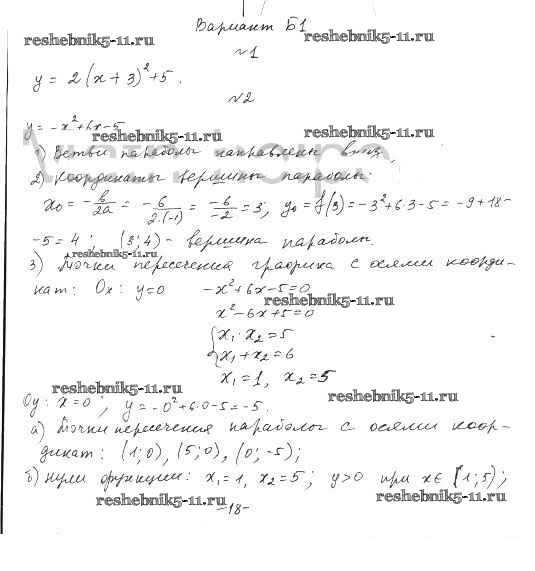 Вариант Б1
reshebnik5-11.ru
reshebnik5-11.ru
№1
y = 2(x+3)²+5.
№2
y = -x²+6x-5
reshebnik5-11.ru
reshebnik5-11.ru
1) Ветви параболы направлены вниз,
2) Координаты вершины параболы:
x₀ = -b/2a = -6/2·(-1) = -6/-2 = 3; y₀ = f(3) = -3²+6·3-5 = -9+18-
-5=4; (3; 4) - вершина параболы.
reshebnik5-11.ru
3) Точки пересечения графика с осями коорди-
нат: Ox: y=0 -x²+6x-5=0
reshebnik5-11.ru
x²-6x+5=0
{x₁·x₂=5
x₁+x₂=6
x₁=1, x₂=5
reshebnik5-11.ru
reshebnik5-11.ru
Oy: x=0; y=-0²+6·0-5=-5.
а) Точки пересечения параболы с осями коор-
динат: (1; 0), (5; 0), (0; -5);
б) нули функции: x₁=1, x₂=5; y>0 при x∈(1; 5);
reshebnik5-11.ru
reshebnik5-11.ru
-18-